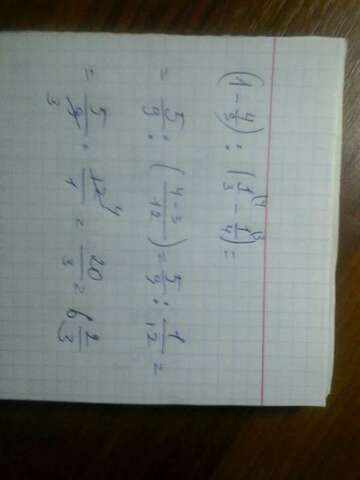 (1 - 4/9) : (1/3⁴ - 1/4³) =
= 5/9 : (4-3/12) = 5/9 : 1/12 =
= 5/9 3 : 12 4/1 = 20/3 = 6 2/3